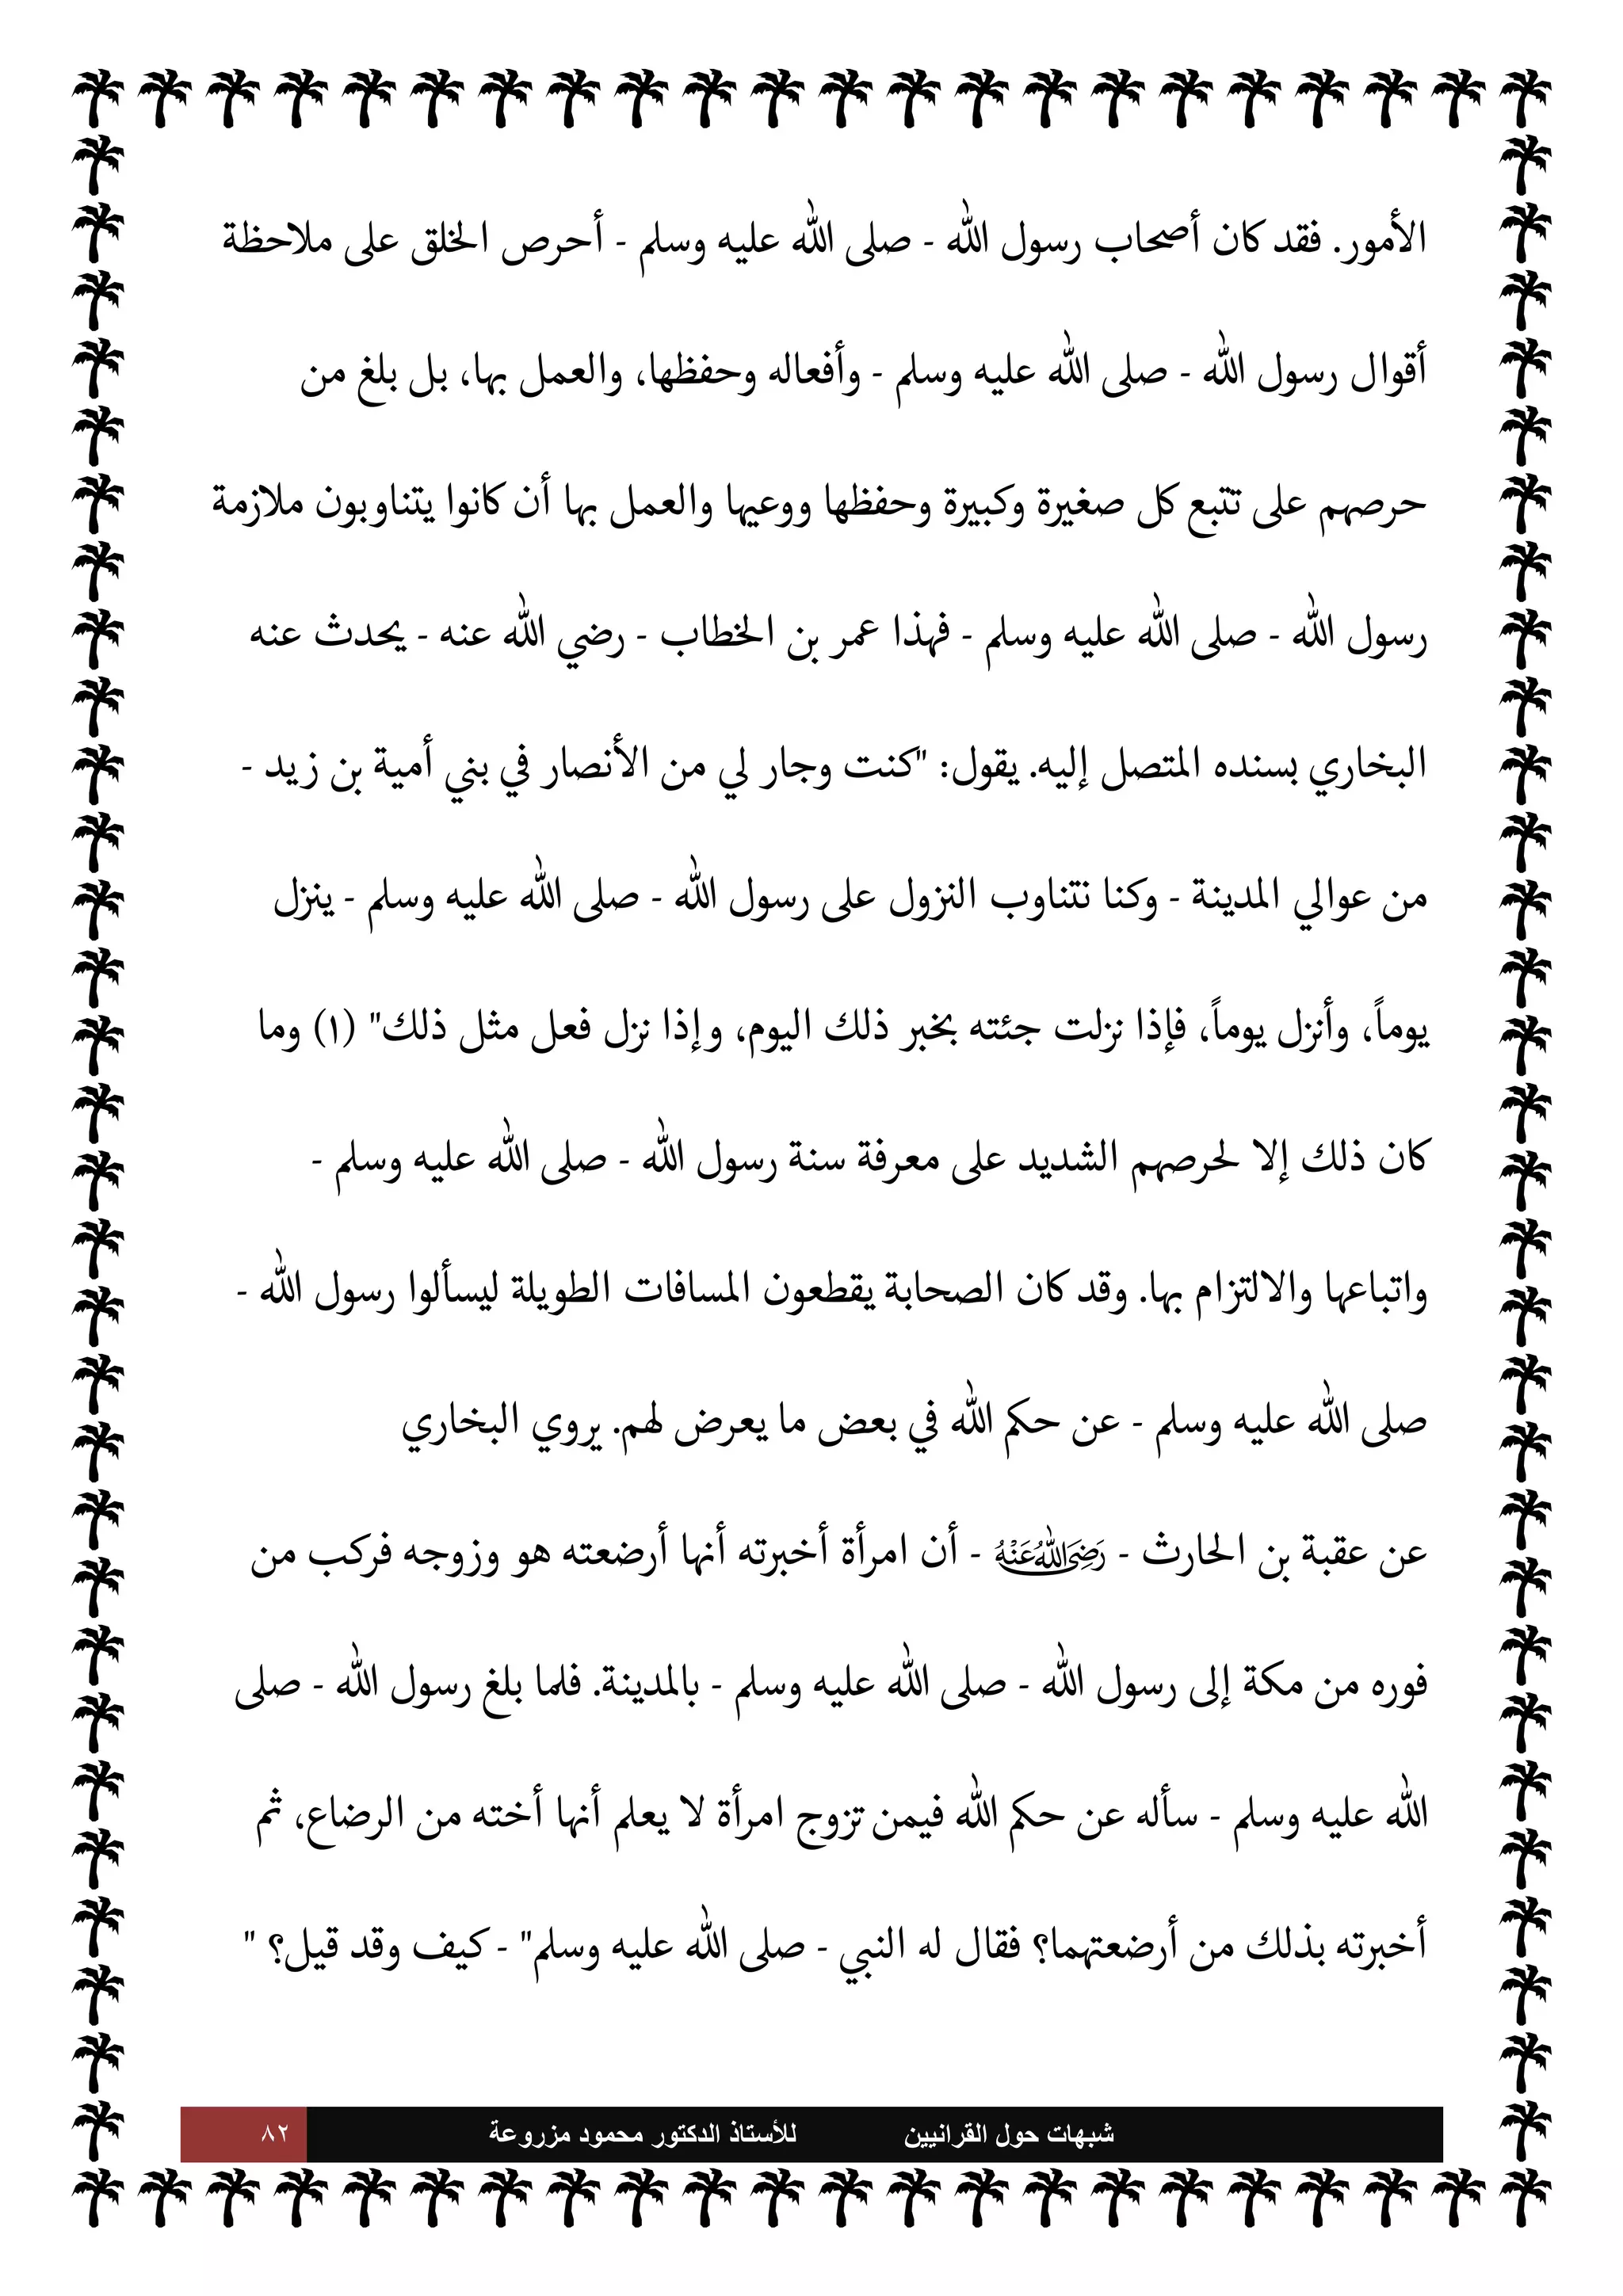 الأمور. فقد كان أصحاب رسول الله - صلى الله عليه وسلم - أحرص الخلق على ملاحظة
أقوال رسول الله - صلى الله عليه وسلم - وأفعاله وحفظها، والعمل بها، بل بلغ من
حرصهم على تتبع كل صغيرة وكبيرة وحفظها ووعيها والعمل بها أن كانوا يتناوبون ملازمة
رسول الله - صلى الله عليه وسلم - فهذا عمر بن الخطاب - رضي الله عنه - يحدث عنه
البخاري بسنده المتصل إليه. يقول: "كنت وجار لي من الأنصار في بني أمية بن زيد -
من عوالي المدينة - وكنا نتناوب النزول على رسول الله - صلى الله عليه وسلم - ينزل
يوماً، وأنزل يوماً، فإذا نزلت جئته بخبر ذلك اليوم، وإذا نزل فعل مثل ذلك" (١) وما
كان ذلك إلا لحرصهم الشديد على معرفة سنة رسول الله - صلى الله عليه وسلم -
واتباعها والالتزام بها. وقد كان الصحابة يقطعون المسافات الطويلة ليسألوا رسول الله -
صلى الله عليه وسلم - عن حكم الله في بعض ما يعرض لهم. يروي البخاري
عن عقبة بن الحارث - رَضِيَ اللهُ عَنْهُ - أن امرأة أخبرته أنها أرضعته هو وزوجه فركب من
فوره من مكة إلى رسول الله - صلى الله عليه وسلم - بالمدينة. فلما بلغ رسول الله - صلى
الله عليه وسلم - سأله عن حكم الله فيمن تزوج امرأة لا يعلم أنها أخته من الرضاع، ثم
أخبرته بذلك من أرضعتهما؟ فقال له النبي - صلى الله عليه وسلم" - كيف وقد قيل؟ "
شبهات حول القرانيين للأستاذ الدكتور محمود مزروعة ٨٢